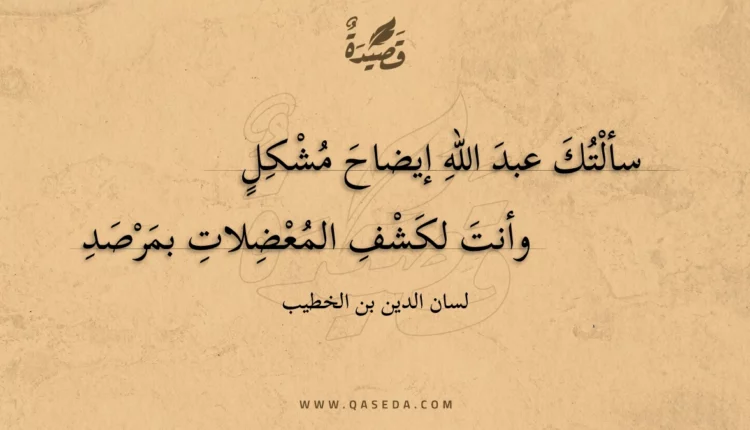 قَصِيْدَةٌ
سألْتُكَ عبدَ اللهِ إيضاحَ مُشْكِلٍ
وأنتَ لكَشْفِ المُعْضِلاتِ بمَرْصَدِ
لسان الدين بن الخطيب
WWW.QASEDA.COM